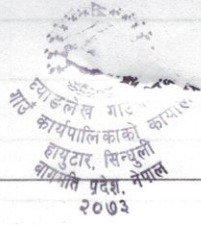 घ्याङलेख गाउँ
गाउँ कार्यपालिकाको कार्याल
हायुटार, सिन्धुली
बागमति प्रदेश, नेपाल
२०७३